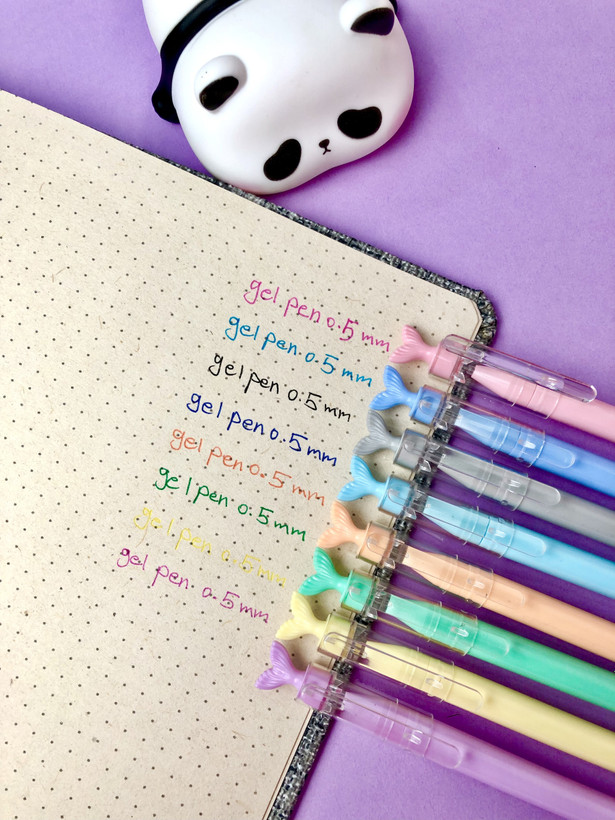 gel pen 0.5 mm
gel pen. 0.5 mm
gel pen 0.5 mm
gel pen 0.5 mm
gel pen 0.5 mm
gel pen 0.5 mm
gel pen 0.5 mm
gel pen. 0.5 mm